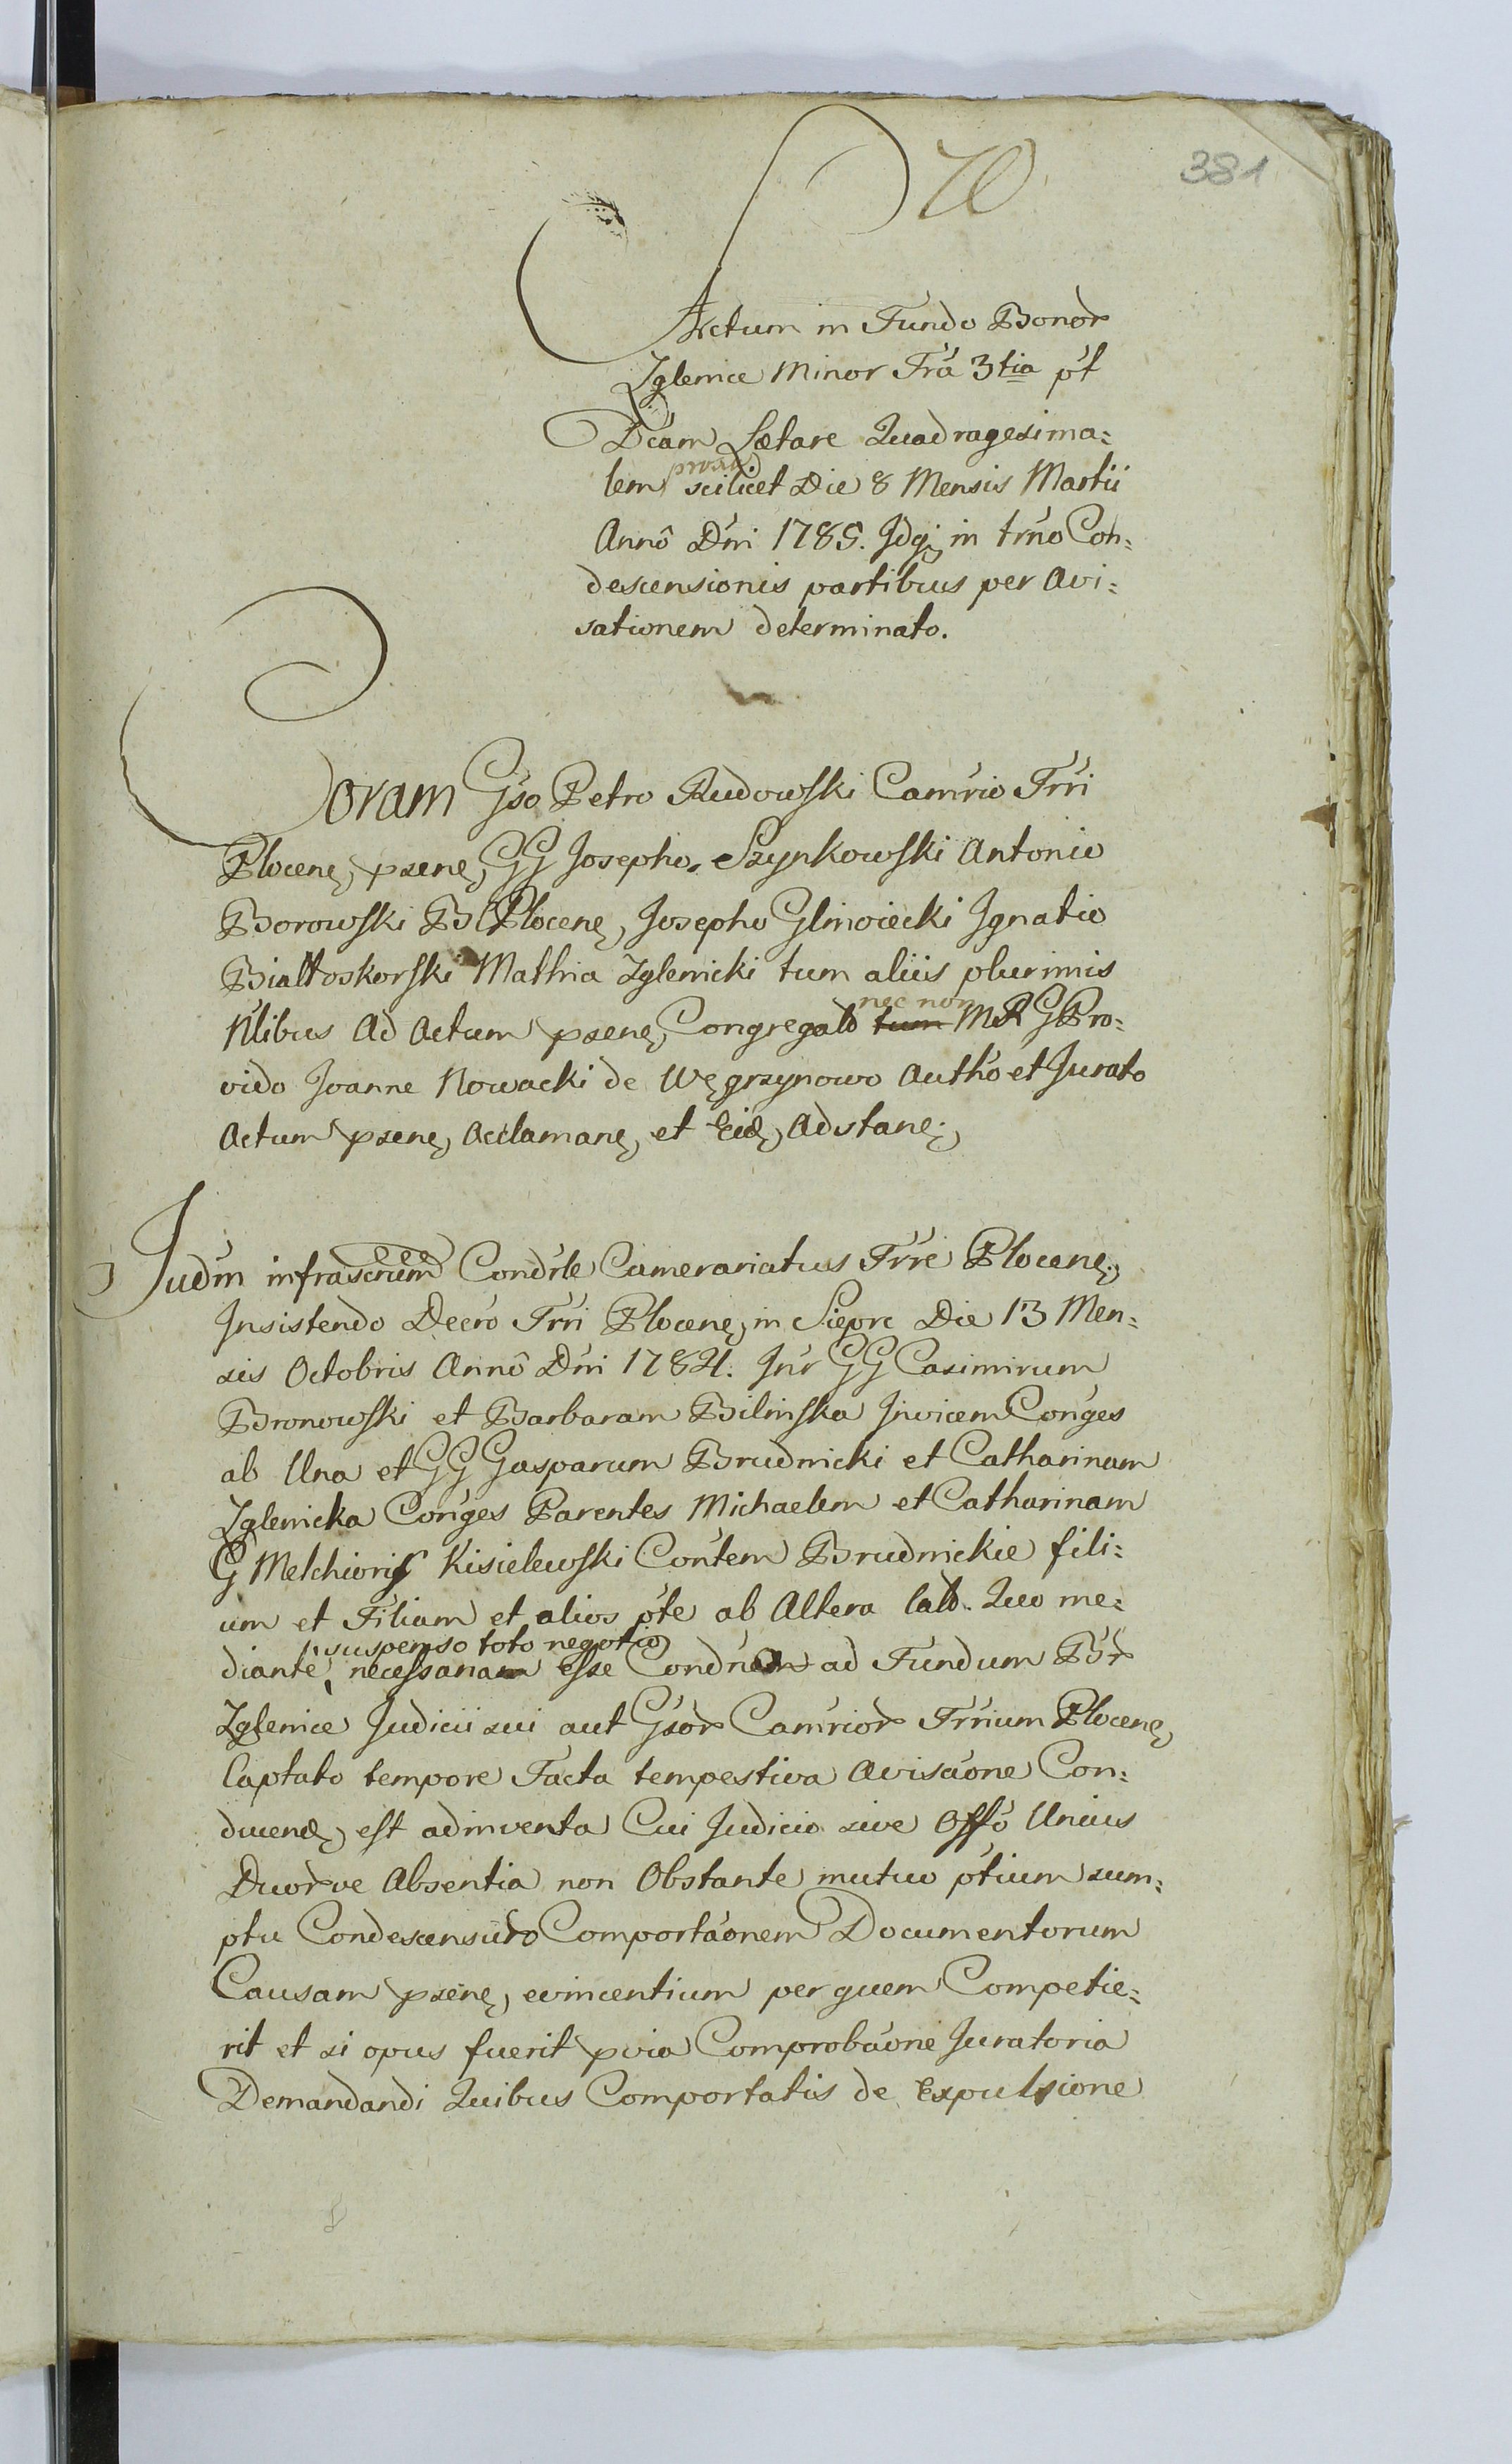 381
Actum in Fundo Bonor
Zglenice Minor Fra 3tia pt
Dcam Lætare Quadragesima=
lem proxi scilicet Die 8 Mensis Martii
Annô Dni 1785. Idq; in trno Con=
descensionis partibus per Avi=
sationem determinato.
Coram Gso Petro Rudowski Camrio Trri
Plocen, pzen, GG Josepho Szynkowski Antonio
Borowski B Plocen, Josepho Glinoiecki Ignatio
Bialtoskorski Mathia Zglenicki tum aliis plurimis
Nlibus Ad Actum pzen, Congregato tum nec non MR G Pro=
vido Joanne Nowacki de Węgrzynowo Autho et Jurato
Actum pzen, Acclaman, et Eid, Adstan,
Judm infrascrum Condrle Camerariatus Trre Plocen,
Insistendo Decro Trri Plocen, in Siepre Die 13 Men=
sis Octobris Annô Dni 1784. Inr GG Casimirum
Bronowski et Barbaram Bilinska Invicem Conges
ab Una et GG Gasparum Brudnicki et Catharinam
Zglenicka Conges Parentes Michaelem et Catharinam
G Melchioris Kisielewski Contem Brudnickie fili=
um et Filiam et alios pte ab Altera lato. Quo me=
diante, suspenso toto negotio necessaria esse Condn ad Fundum Br
Zglenice Judicii sui aut Gsor Camrior Trrium Plocen,
Captato tempore Facta tempestiva Avisaone Con=
ducend, est adinventa Cui Judicio sive Offo Unius
Duorve Absentia non Obstante mutuo ptium sum=
ptu Condescensuro Comportaonem Documentorum
Causam pzen, evincentium per quem Competie=
rit et si opus fuerit pvia Comprobaone Juratoria
Demandandi Quibus Comportatis de Expulsione